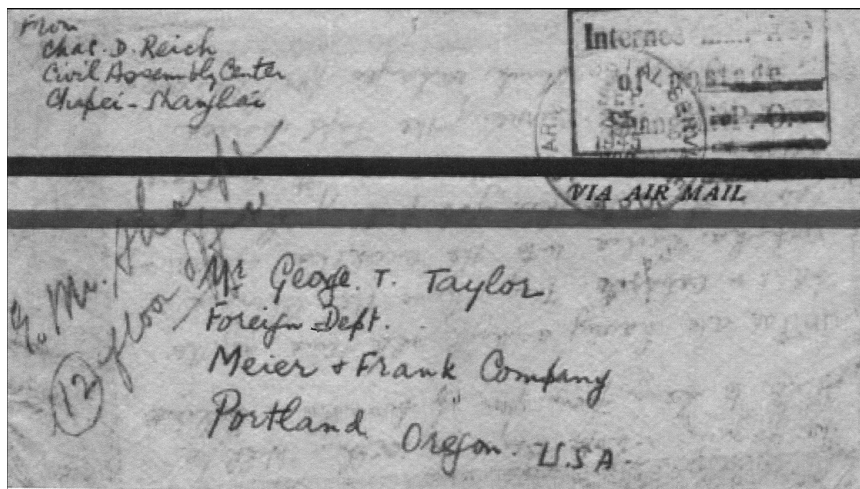 From
Chas. D. Reich
Civil Assembly Center
Chapei - Shanghai
Internee
of postage
Shanghai P. O.
VIA AIR MAIL
Mr. George. T. Taylor
Foreign Dept.
Meier & Frank Company
Portland Oregon. U.S.A.
Mr.
12 floor